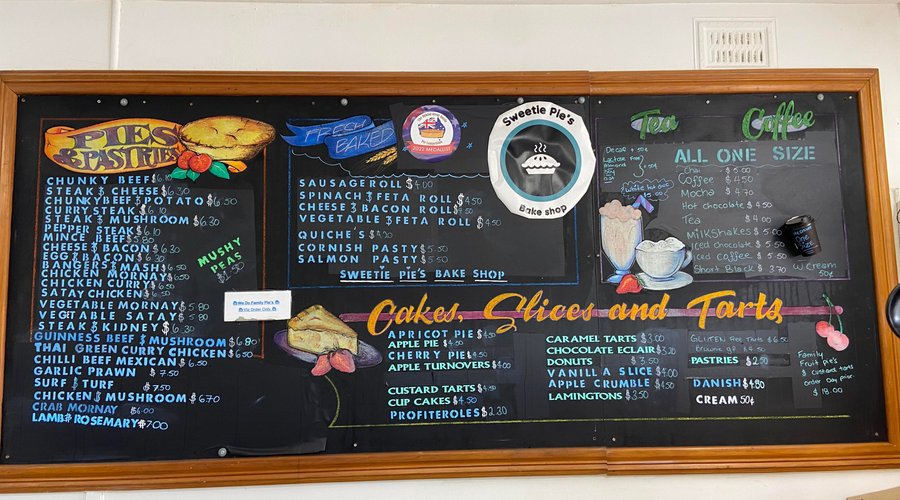 PIES
& PASTRIES
CHUNKY BEEF $6.10
STEAK & CHEESE $6.30
CHUNKY BEEF & POTATO $6.50
CURRY STEAK $6.10
STEAK & MUSHROOM $6.30
PEPPER STEAK $6.10
MINCE BEEF $5.80
CHEESE & BACON $6.30
EGG & BACON $6.30
BANGERS & MASH $6.50
CHICKEN MORNAY $6.50
CHICKEN CURRY $6.50
SATAY CHICKEN $6.50
VEGETABLE MORNAY $5.80
VEGETABLE SATAY $5.80
STEAK & KIDNEY $6.30
GUINNESS BEEF & MUSHROOM $6.80
THAI GREEN CURRY CHICKEN $6.50
CHILLI BEEF MEXICAN $6.50
GARLIC PRAWN $7.50
SURF & TURF $7.50
CHICKEN & MUSHROOM $6.70
CRAB MORNAY $6.00
LAMB & ROSEMARY $7.00
MUSHY
PEAS
We Do Family Pie's
FRESH
BAKED
2022 MEDALLIST
SAUSAGE ROLL $4.00
SPINACH & FETA ROLL $4.50
CHEESE & BACON ROLL $4.50
VEGETABLE & FETA ROLL $4.50
QUICHE'S $4.20
CORNISH PASTY $5.50
SALMON PASTY $5.50
SWEETIE PIE'S BAKE SHOP
Sweetie Pie's
Bake shop
Tea Coffee
Decaf + 50¢
Lactose Free
Almond
Soy
+ 50¢
ALL ONE SIZE
Chai $5.00
Coffee $4.50
Mocha $4.70
Hot chocolate $4.50
Tea $4.00
Milkshakes $5.00
Iced chocolate $5.50
Iced coffee $5.50
Short Black $3.70
W Cream
50¢
One
Size
Cakes, Slices and Tarts
APRICOT PIE $4.50
APPLE PIE $4.00
CHERRY PIE $4.50
APPLE TURNOVERS $4.00
CUSTARD TARTS $4.50
CUP CAKES $4.50
PROFITEROLES $2.30
CARAMEL TARTS $3.00
CHOCOLATE ECLAIR $3.20
DONUTS $3.50
VANILLA SLICE $4.00
APPLE CRUMBLE $4.50
LAMINGTONS $3.50
GLUTEN free Tarts $6.50
Brownie GF $4.50
PASTRIES $2.50
DANISH $4.80
CREAM 50¢
Family
Fruit Pie's
& custard tarts
order Day prior
$18.00